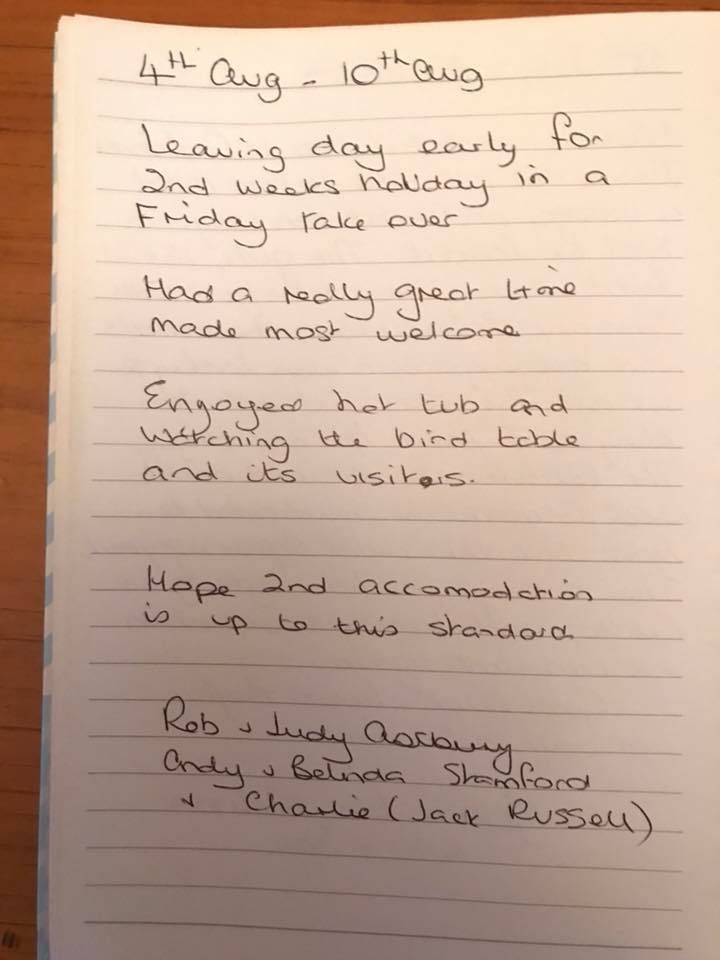 4th Aug - 10th Aug
Leaving day early for
2nd weeks holiday in a
Friday take over
Had a really great time
made most welcome
Engoyed hot tub and
Watching the bird table
and its visitors.
Hope 2nd accomodation
is up to this standard
Rob & Judy
Andy & Belinda Stamford
& Charlie (Jack Russell)